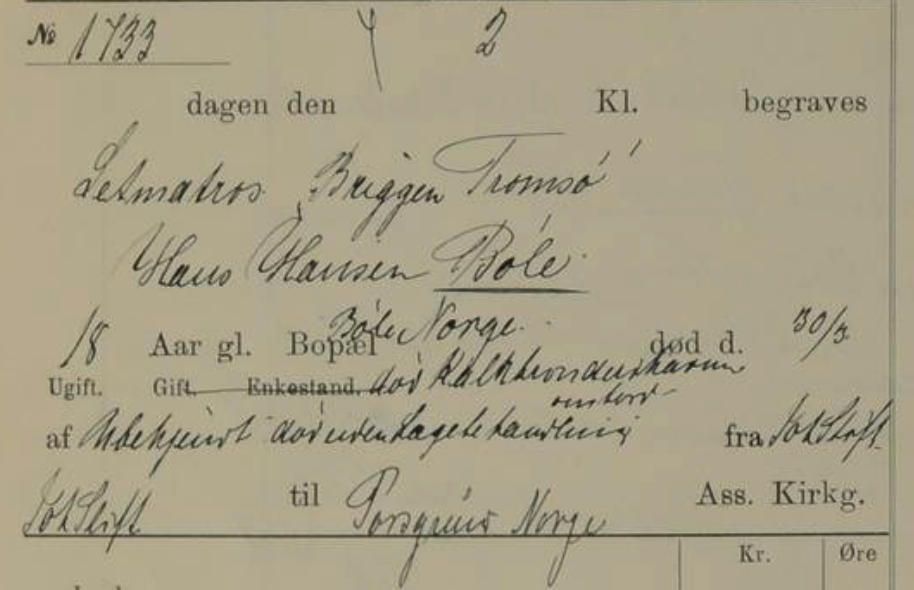 № 1733 4 2
dagen den Kl. begraves
Letmatros Briggen Tromsø
Hans Hansen Bøle
Bøle Norge.
18 Aar gl. Bopæl død d. 30/3
Ugift. Gift. Enkestand. død
af Ubekjendt død uden Lægebehandling fra Joh Stift
Joh Stift til Porsgrund Norge Ass. Kirkg.
Kr. Øre